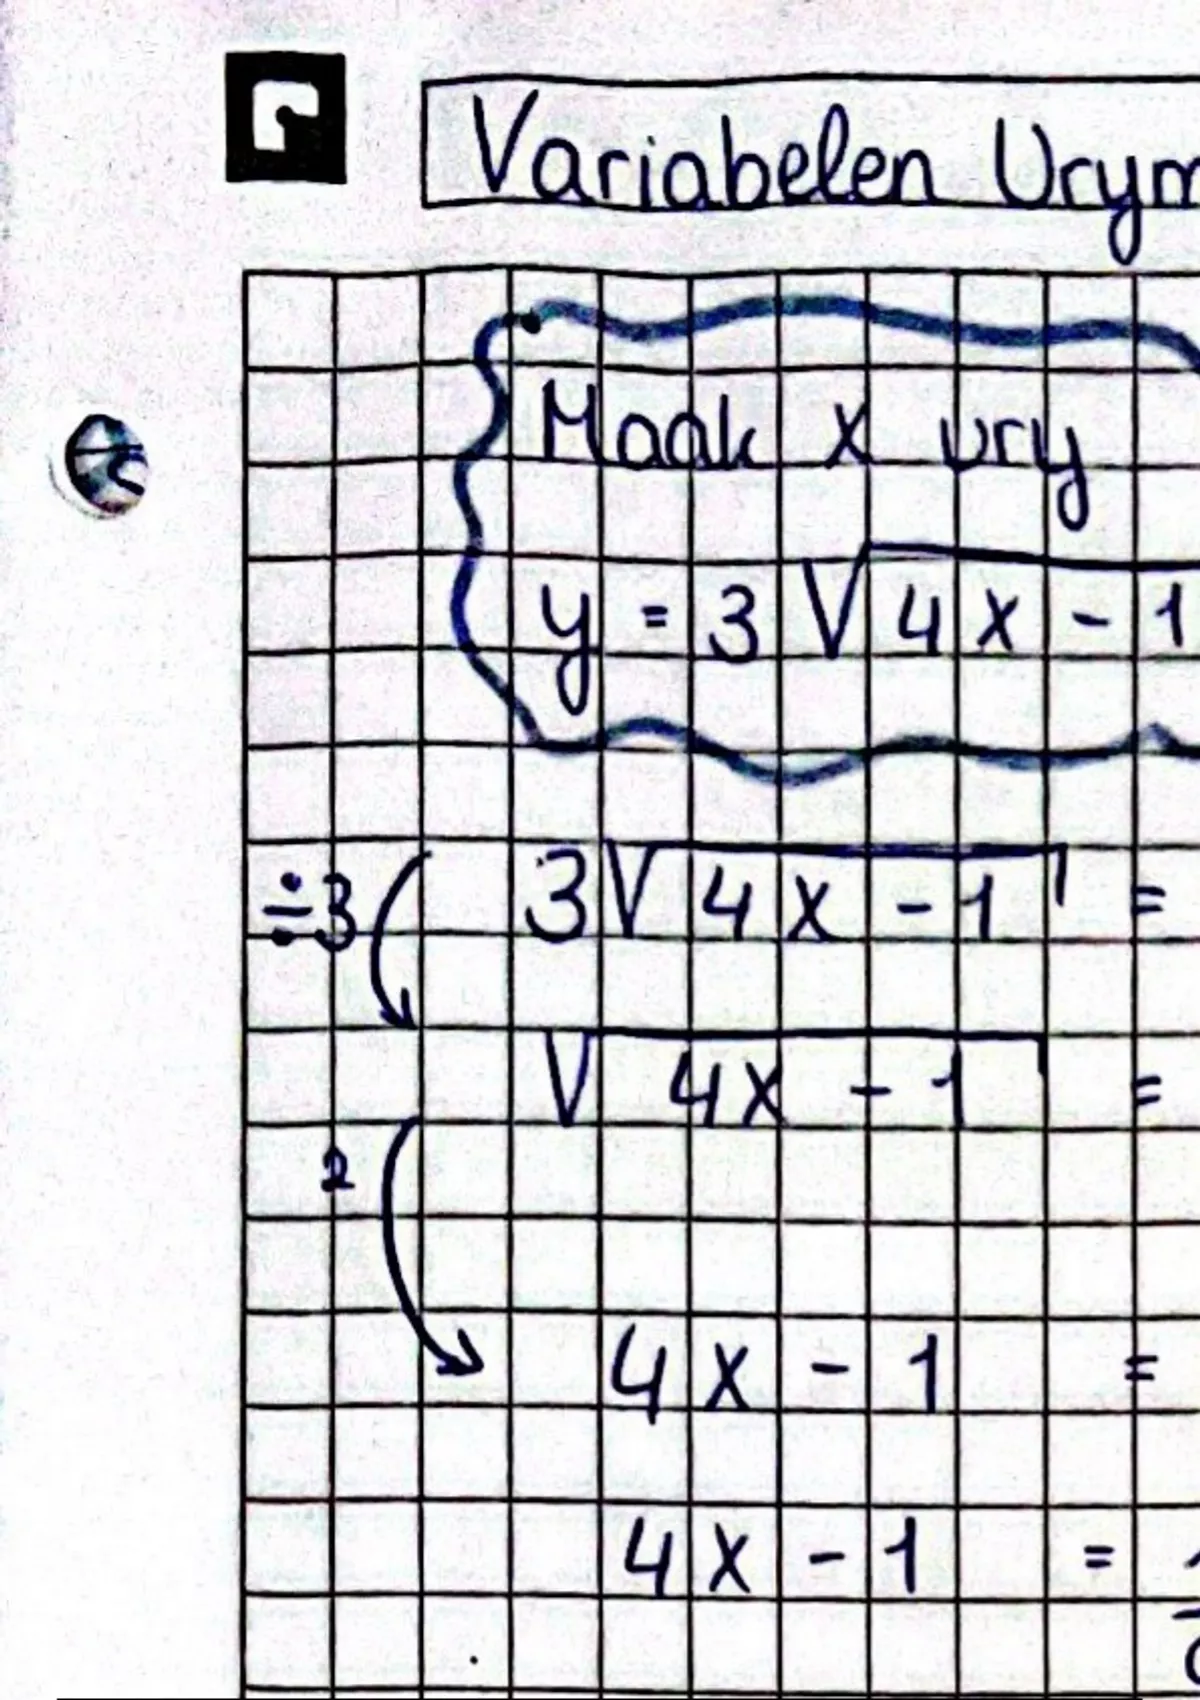 Variabelen Vrym
Maak x vry
y = 3 √4x - 1
÷3 3√4x - 1 =
√4x - 1 =
2
4x - 1 =
4x - 1 =